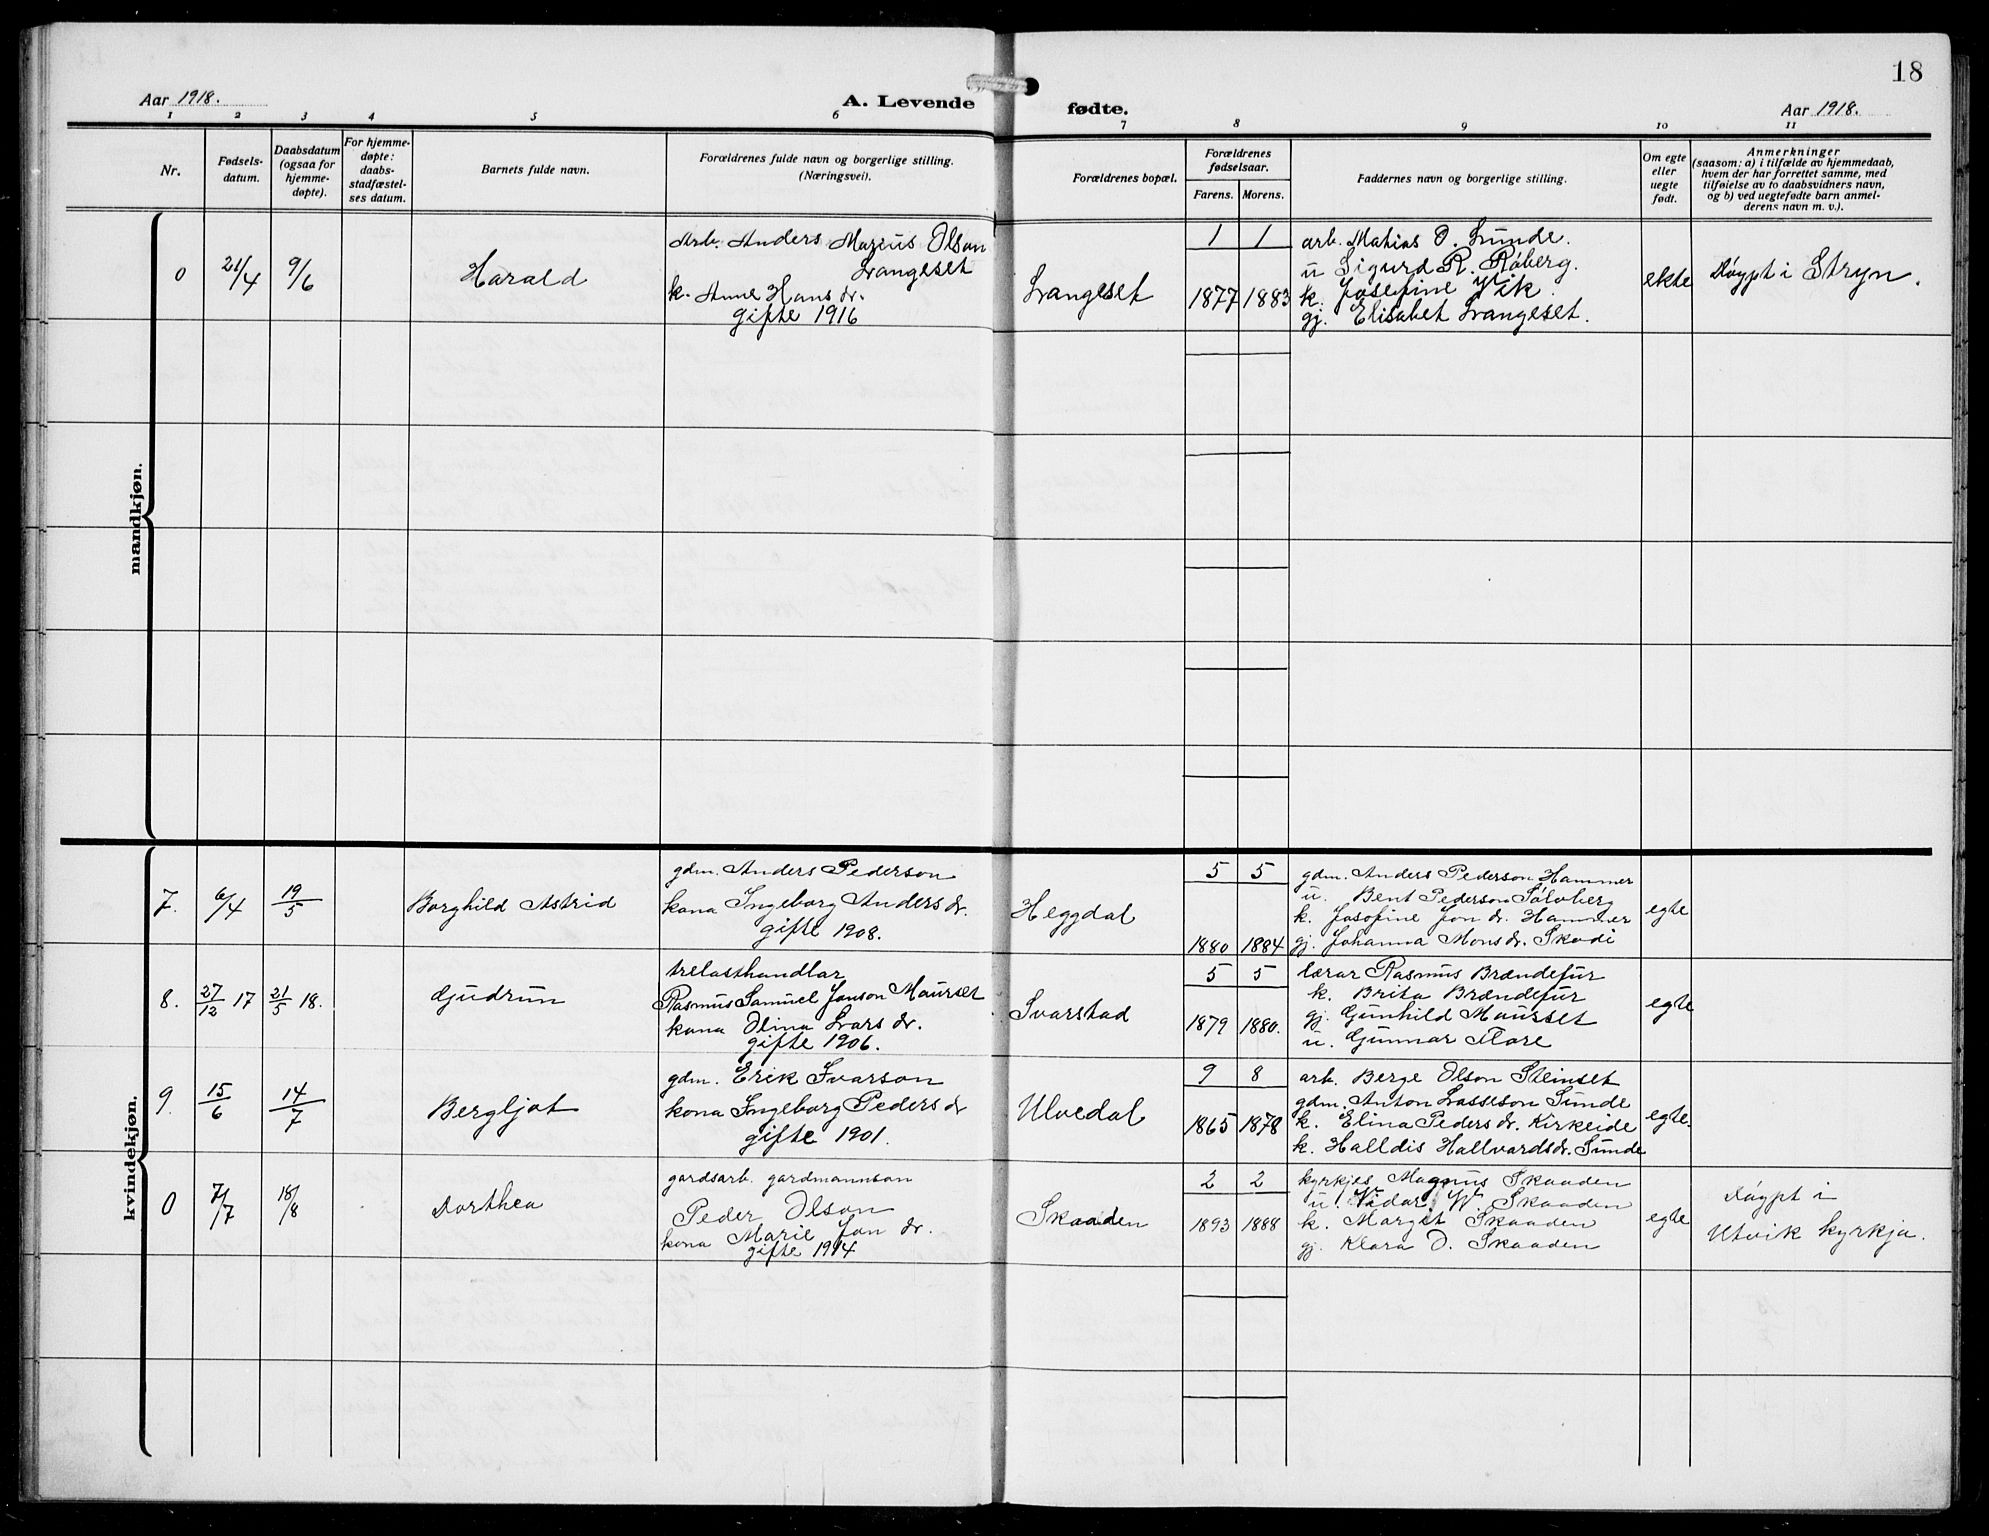 18
Aar 1918.
A. Levende
fødte.
Aar 1918.
1 2 3 4 5 6 7 8 9 10 11
Nr.
Fødsels-
datum.
Daabsdatum
(ogsaa for
hjemme-
døpte).
For hjemme-
døpte:
daabs-
stadfæstel-
ses datum.
Barnets fulde navn.
Forældrenes fulde navn og borgerlige stilling.
(Næringsvei).
Forældrenes bopæl.
Forældrenes
fødselsaar.
Farens. Morens.
Faddernes navn og borgerlige stilling.
Om egte
eller
uegte
født.
Anmerkninger
(saasom: a) i tilfælde av hjemmedaab,
hvem der har forrettet samme, med
tilføielse av to daabsvidners navn,
og b) ved uegtefødte barn anmel-
derens navn m. v.).
mandkjøn.
0
21/4
9/6
Harald
Arb. Anders Marius Olson
Langeset
k. Anne Hans dr.
gifte 1916
Langeset
1 1
1877 1883
arb. Matias O. Sunde.
u Sigurd R. Røberg.
k. Josefine Vik.
gj. Elisabet Langeset.
ekte
Døypt i Stryn.
kvindekjøn.
7.
6/4
19/5
Borghild Astrid
gdm. Anders Pederson
kona Ingeborg Anders dr.
gifte 1908.
Heggdal
5 5
1880 1884
gdm. Anders Pederson Hammer
u. Bent Pederson Sølvberg
k. Josefine Jon dr. Hammer
gj. Johanna Mons dr. Skodi
egte
8.
27/12 17
21/5 18.
Gjudrun
trelasthandlar
Rasmus Samuel Janson Maurset
kona Olina Lars dr.
gifte 1906.
Svarstad
5 5
1879 1880.
lærar Rasmus Brændefur
k. Brita Brændefur
gj. Gunhild Maurset
u. Gunnar Flore
egte
9.
15/6
14/7
Bergljot
gdm. Erik Ivarson
kona Ingeborg Peders dr
gifte 1901.
Ulvedal
9 8
1865 1878
arb. Berge Olson Steinset
gdm. Anton Lasseson Sunde
k. Elina Peders dr. Kirkeide
k. Halldis Hallvardsdr. Sunde
egte.
0
7/7
18/8
Dorthea
gardsarb. gardmannson
Peder Olson
kona Marie Jon dr.
gifte 1914
Skaaden
2 2
1893 1888
kyrkjes Magnus Skaaden
u. Vidar W. Skaaden
k. Marget Skaaden
gj. Klara O. Skaaden
egte
Døypt i
Utvik kyrkja.